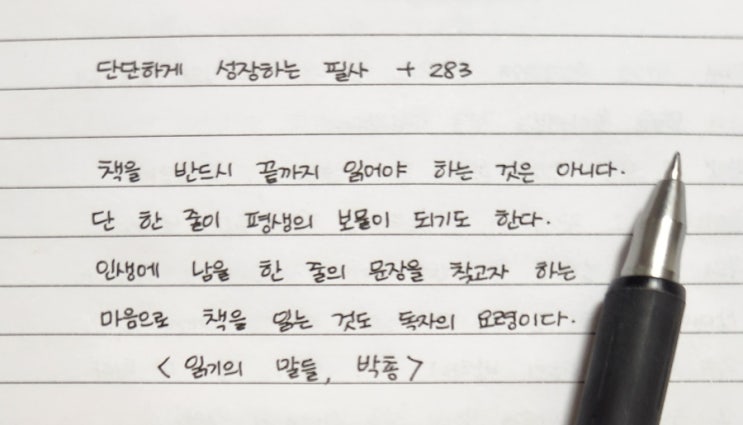 단단하게 성장하는 필사 + 283
책을 반드시 끝까지 읽어야 하는 것은 아니다.
단 한 줄이 평생의 보물이 되기도 한다.
인생에 남을 한 줄의 문장을 찾고자 하는
마음으로 책을 읽는 것도 독자의 요령이다.
<읽기의 말들, 박총>